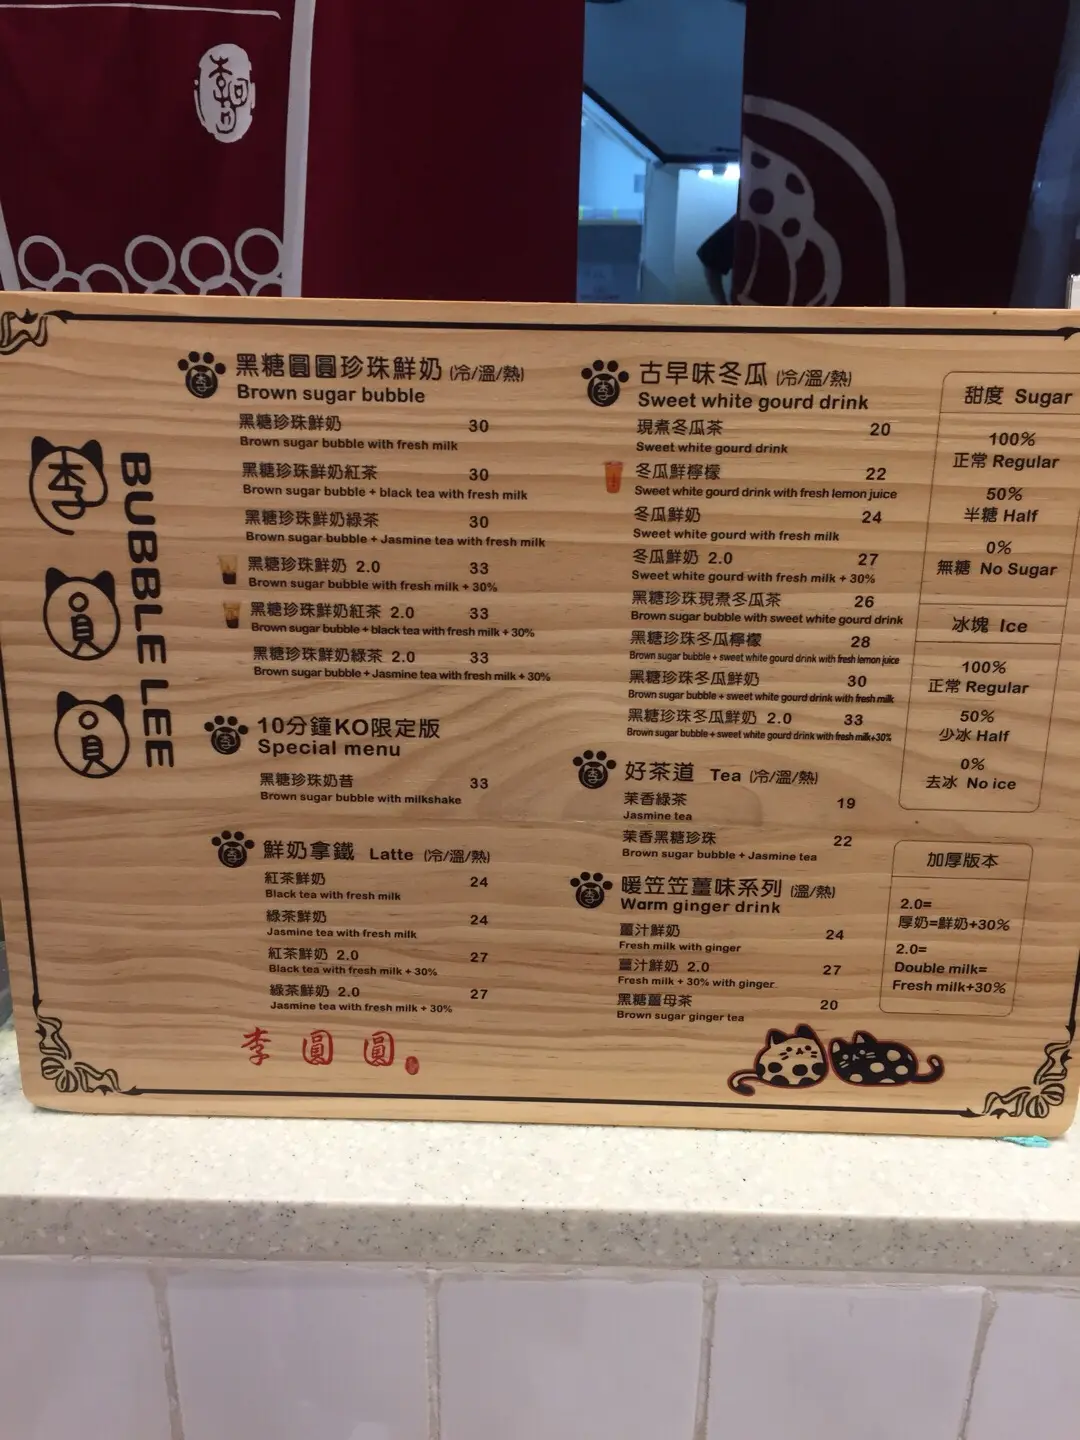 李圓圓
BUBBLE LEE
黑糖圓圓珍珠鮮奶 (冷/溫/熱)
Brown sugar bubble
黑糖珍珠鮮奶 30
Brown sugar bubble with fresh milk
黑糖珍珠鮮奶紅茶 30
Brown sugar bubble + black tea with fresh milk
黑糖珍珠鮮奶綠茶 30
Brown sugar bubble + Jasmine tea with fresh milk
黑糖珍珠鮮奶 2.0 33
Brown sugar bubble with fresh milk + 30%
黑糖珍珠鮮奶紅茶 2.0 33
Brown sugar bubble + black tea with fresh milk + 30%
黑糖珍珠鮮奶綠茶 2.0 33
Brown sugar bubble + Jasmine tea with fresh milk + 30%
10分鐘KO限定版
Special menu
黑糖珍珠奶昔 33
Brown sugar bubble with milkshake
鮮奶拿鐵 Latte (冷/溫/熱)
紅茶鮮奶 24
Black tea with fresh milk
綠茶鮮奶 24
Jasmine tea with fresh milk
紅茶鮮奶 2.0 27
Black tea with fresh milk + 30%
綠茶鮮奶 2.0 27
Jasmine tea with fresh milk + 30%
李圓圓
古早味冬瓜 (冷/溫/熱)
Sweet white gourd drink
現煮冬瓜茶 20
Sweet white gourd drink
冬瓜鮮檸檬 22
Sweet white gourd drink with fresh lemon juice
冬瓜鮮奶 24
Sweet white gourd with fresh milk
冬瓜鮮奶 2.0 27
Sweet white gourd with fresh milk + 30%
黑糖珍珠現煮冬瓜茶 26
Brown sugar bubble with sweet white gourd drink
黑糖珍珠冬瓜檸檬 28
Brown sugar bubble + sweet white gourd drink with fresh lemon juice
黑糖珍珠冬瓜鮮奶 30
Brown sugar bubble + sweet white gourd drink with fresh milk
黑糖珍珠冬瓜鮮奶 2.0 33
Brown sugar bubble + sweet white gourd drink with fresh milk+30%
好茶道 Tea (冷/溫/熱)
茉香綠茶 19
Jasmine tea
茉香黑糖珍珠 22
Brown sugar bubble + Jasmine tea
暖笠笠薑味系列 (溫/熱)
Warm ginger drink
薑汁鮮奶 24
Fresh milk with ginger
薑汁鮮奶 2.0 27
Fresh milk + 30% with ginger
黑糖薑母茶 20
Brown sugar ginger tea
甜度 Sugar
100%
正常 Regular
50%
半糖 Half
0%
無糖 No Sugar
冰塊 Ice
100%
正常 Regular
50%
少冰 Half
0%
去冰 No ice
加厚版本
2.0=
厚奶=鮮奶+30%
2.0=
Double milk=
Fresh milk+30%